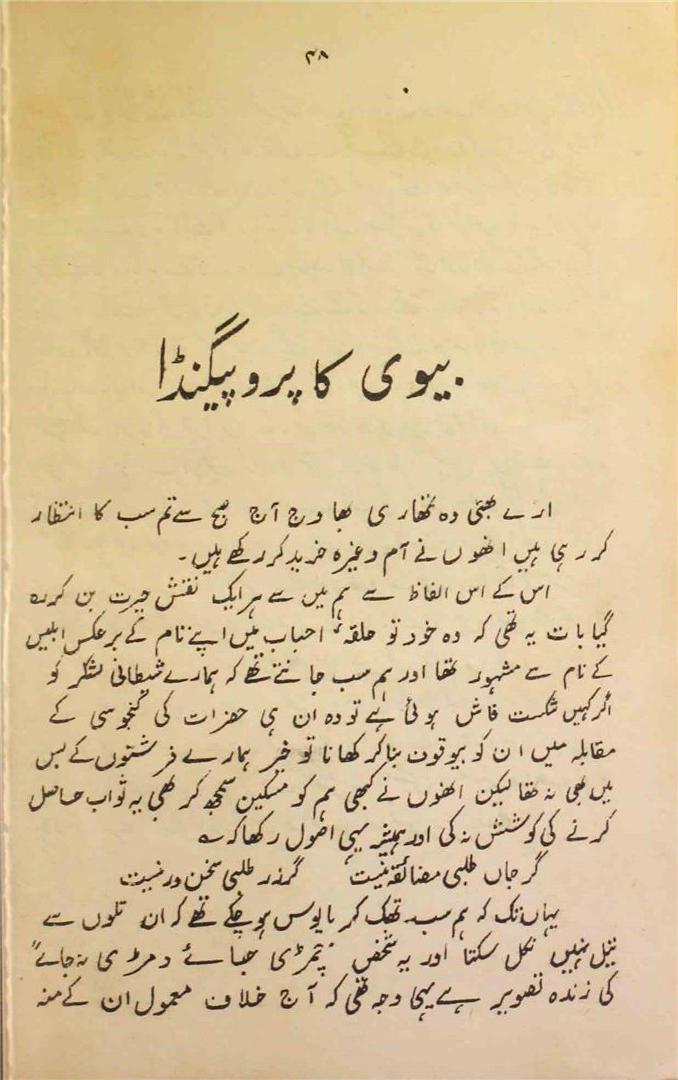 ۴۸
بیوی کا پروپیگنڈا
ارے بھئی وہ تمھاری بھاوج آج صبح سے تم سب کا انتظار
کر رہی ہیں انھوں نے آم وغیرہ خرید کر رکھے ہیں۔
اس کے اس الفاظ سے ہم میں سے ہر ایک نقش حیرت بن کر رہ
گیا بات یہ تھی کہ وہ خود تو حلقۂ احباب میں اپنے نام کے برعکس ابلیس
کے نام سے مشہور تھا اور ہم سب جانتے تھے کہ ہمارے شیطانی لشکر کو
اگر کہیں شکست فاش ہوئی ہے تو وہ ان ہی حضرات کی کنجوسی کے
مقابلہ میں ان کو بیوقوف بنا کر کھانا تو خیر ہمارے فرشتوں کے بس
میں بھی نہ تھا لیکن انھوں نے کبھی ہم کو مسکین سمجھ کر بھی یہ ثواب حاصل
کرنے کی کوشش نہ کی اور ہمیشہ یہی اصول رکھا کہ ؎
گر جاں طلبی مضائقہ نیست گر زر طلبی سخن در نیست
یہاں تک کہ ہم سب تھک کر مایوس ہو چکے تھے کہ ان تلوں سے
تیل نہیں نکل سکتا اور یہ شخص "چمڑی جائے دمڑی نہ جائے"
کی زندہ تصویر ہے یہی وجہ تھی کہ آج خلاف معمول ان کے منہ